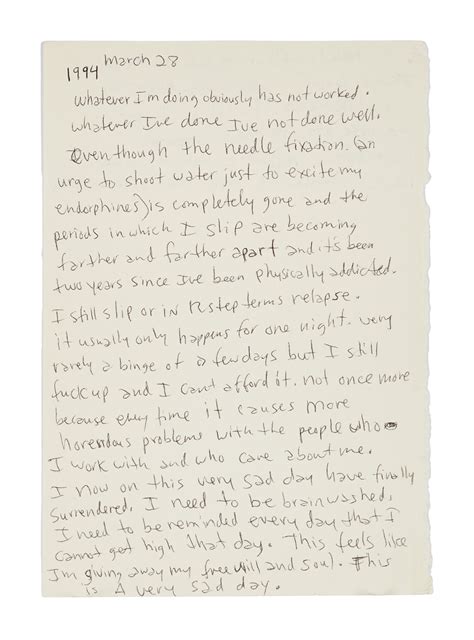 1994 March 28
whatever I'm doing obviously has not worked.
whatever Ive done Ive not done well.
Even though the needle fixation (an
urge to shoot water just to excite my
endorphines) is completely gone and the
periods in which I slip are becoming
farther and farther apart and it's been
two years since Ive been physically addicted.
I still slip or in 12 step terms relapse.
it usually only happens for one night. very
rarely a binge of a few days but I still
fuck up and I cant afford it. not once more
because every time it causes more
horendous problems with the people who
I work with and who care about me.
I now on this very sad day have finally
surrendered. I need to be brainwashed.
I need to be reminded every day that I
cannot get high that day. This feels like
I'm giving away my free will and soul. This
is a very sad day.